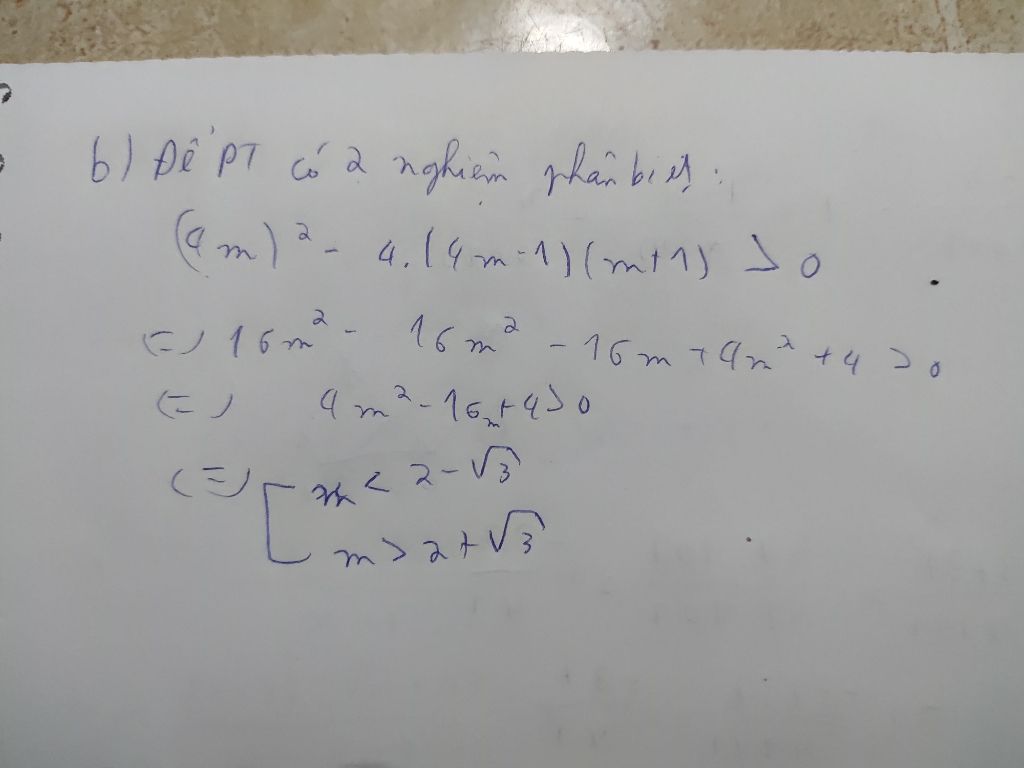 b) Để PT có 2 nghiệm phân biệt:
(4m)² - 4.(4m-1)(m+1) > 0
(=) 16m² - 16m² - 16m + 4m² + 4 > 0
(=) 4m² - 16m + 4 > 0
(=) [ m < 2 - √3
m > 2 + √3